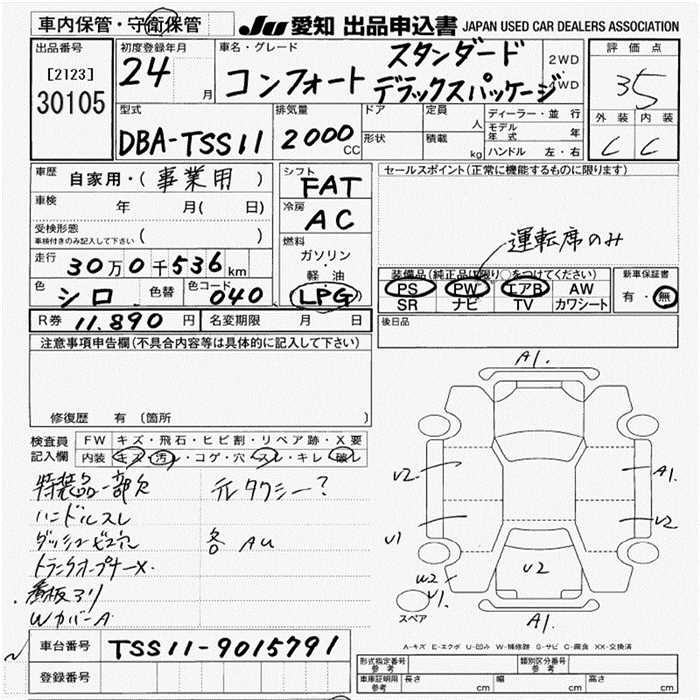 車内保管・守衛保管
JU 愛知 出品申込書 JAPAN USED CAR DEALERS ASSOCIATION
出品番号
[2123]
30105
初度登録年月
24 月
車名・グレード
コンフォート スタンダード
デラックスパッケージ
2WD
4WD
評価点
35
外装 内装
C C
型式
DBA-TSS11
排気量
2000 CC
ドア
形状
定員 人
積載 kg
ディーラー・並行
モデル年式 年
ハンドル 左・右
車歴 自家用・(事業用)
車検 年 月( 日)
受検形態
車検付きのみ記入して下さい ( )
走行 30万0千536km
色 シロ 色替 色コード 040
シフト
FAT
冷房
AC
燃料
ガソリン
軽・油
LPG
R券 11,890 円 名変期限 月 日
セールスポイント(正常に機能するものに限ります)
運転席のみ
装備品(純正品に限り○をつけてください)
PS PW エアB AW
SR ナビ TV カワシート
新車保証書
有・無
後日品
注意事項申告欄(不具合内容等は具体的に記入して下さい)
修復歴 有 (箇所 )
検査員記入欄
FW キズ・飛石・ヒビ割・リペア跡・X要
内装 キズ・汚レ・コゲ・穴・スレ・キレ・破レ
特装品一部欠 元タクシー?
ハンドルスレ
ダッシュビス穴 各 AU
トランクオープナーX
看板アリ
WカバーA
A1.
U2 A1.
U1 U2
U2
W2
U1.
A1.
スペア
A-キズ E-エクボ U-凹み W-補修跡 S-サビ C-腐食 XX-交換済
車台番号 TSS11-9015791
登録番号
型式指定番号 参考 類別区分番号 参考
車庫証明用 参考 長さ cm 幅 cm 高さ cm